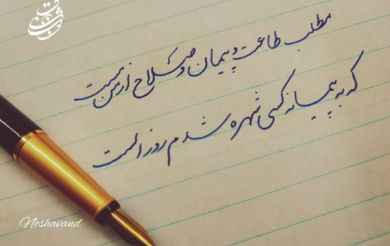 مطلب طاعت و پیمان و صلاح از من مست
که به پیمانه کشی شهره شدم روز الست
Neshavand